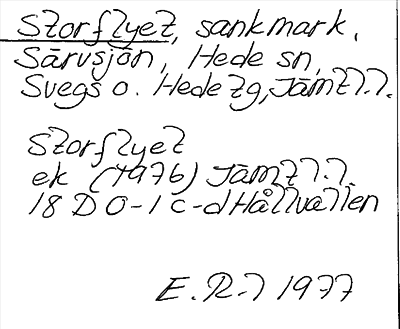 Storflyet, sankmark.
Särvsjön, Hede sn,
Svegs o. Hede tg, Jämtl.l.
Storflyet
ek (1976) Jämtl.l.
18 D 0-1 c-d Hållvallen
E.R.l 1977